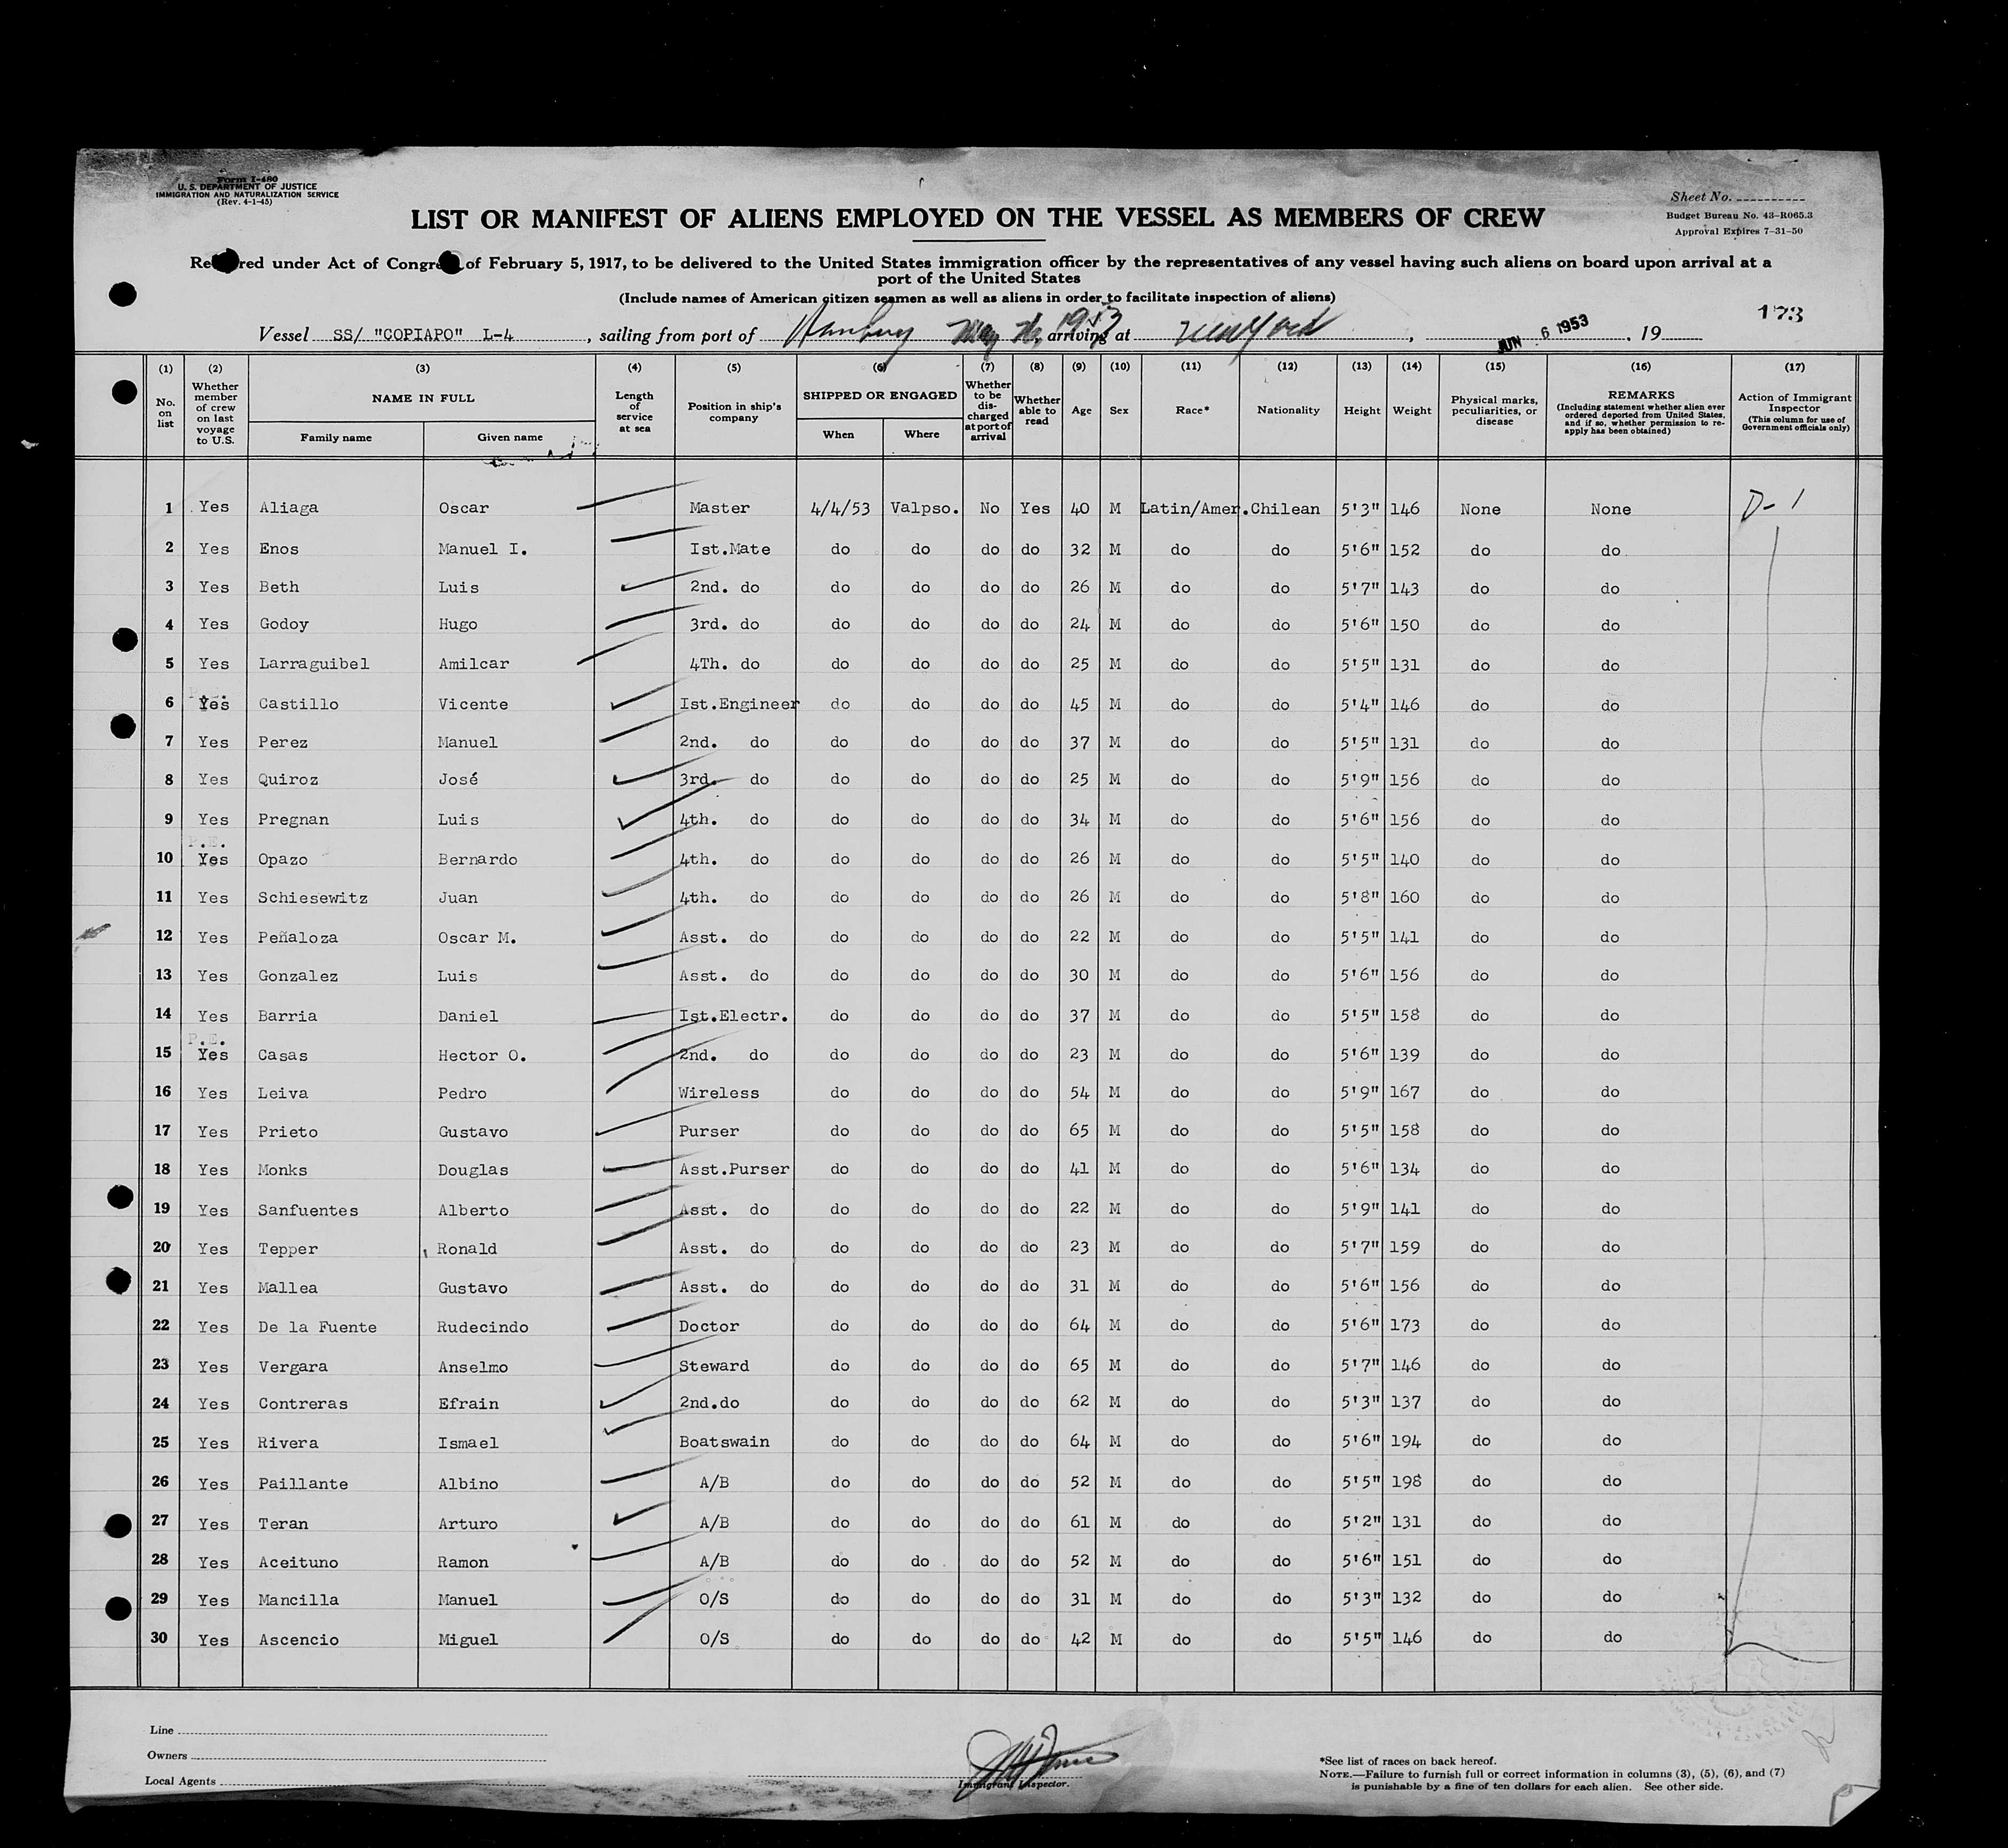 Form I-480
U. S. DEPARTMENT OF JUSTICE
IMMIGRATION AND NATURALIZATION SERVICE
(Rev. 4-1-45)
Sheet No.
Budget Bureau No. 43-R065.3
Approval Expires 7-31-50
LIST OR MANIFEST OF ALIENS EMPLOYED ON THE VESSEL AS MEMBERS OF CREW
under Act of of February 5, 1917, to be delivered to the United States immigration officer by the representatives of any vessel having such aliens on board upon arrival at a
port of the United States
(Include names of American citizen seamen as well as aliens in order to facilitate inspection of aliens)
173
Vessel SS/ "COPIAPO" L-4, sailing from port of Hamburg May 1953 arriving at New York, JUN 6 1953, 19
(1) (2) (3) (4) (5) (6) (7) (8) (9) (10) (11) (12) (13) (14) (15) (16) (17)
No. on list
Whether member of crew on last voyage to U.S.
NAME IN FULL
Family name Given name
Length of service at sea
Position in ship's company
SHIPPED OR ENGAGED
When Where
Whether to be discharged at port of arrival
Whether able to read
Age Sex Race* Nationality Height Weight
Physical marks, peculiarities, or disease
REMARKS
(Including statement whether alien ever ordered deported from United States, and if so, whether permission to re-apply has been obtained)
Action of Immigrant Inspector
(This column for use of Government officials only)
1 Yes Aliaga Oscar Master 4/4/53 Valpso. No Yes 40 M Latin/Amer. Chilean 5'3" 146 None None D-1
2 Yes Enos Manuel I. Ist.Mate do do do do 32 M do do 5'6" 152 do do
3 Yes Beth Luis 2nd. do do do do do 26 M do do 5'7" 143 do do
4 Yes Godoy Hugo 3rd. do do do do do 24 M do do 5'6" 150 do do
5 Yes Larraguibel Amilcar 4Th. do do do do do 25 M do do 5'5" 131 do do
6 Yes Castillo Vicente Ist.Engineer do do do do 45 M do do 5'4" 146 do do
7 Yes Perez Manuel 2nd. do do do do do 37 M do do 5'5" 131 do do
8 Yes Quiroz José 3rd. do do do do do 25 M do do 5'9" 156 do do
9 Yes Pregnan Luis 4th. do do do do do 34 M do do 5'6" 156 do do
P.E.
10 Yes Opazo Bernardo 4th. do do do do do 26 M do do 5'5" 140 do do
11 Yes Schiesewitz Juan 4th. do do do do do 26 M do do 5'8" 160 do do
12 Yes Peñaloza Oscar M. Asst. do do do do do 22 M do do 5'5" 141 do do
13 Yes Gonzalez Luis Asst. do do do do do 30 M do do 5'6" 156 do do
14 Yes Barria Daniel Ist.Electr. do do do do 37 M do do 5'5" 158 do do
P.E.
15 Yes Casas Hector O. 2nd. do do do do do 23 M do do 5'6" 139 do do
16 Yes Leiva Pedro Wireless do do do do 54 M do do 5'9" 167 do do
17 Yes Prieto Gustavo Purser do do do do 65 M do do 5'5" 158 do do
18 Yes Monks Douglas Asst.Purser do do do do 41 M do do 5'6" 134 do do
19 Yes Sanfuentes Alberto Asst. do do do do do 22 M do do 5'9" 141 do do
20 Yes Tepper Ronald Asst. do do do do do 23 M do do 5'7" 159 do do
21 Yes Mallea Gustavo Asst. do do do do do 31 M do do 5'6" 156 do do
22 Yes De la Fuente Rudecindo Doctor do do do do 64 M do do 5'6" 173 do do
23 Yes Vergara Anselmo Steward do do do do 65 M do do 5'7" 146 do do
24 Yes Contreras Efrain 2nd.do do do do do 62 M do do 5'3" 137 do do
25 Yes Rivera Ismael Boatswain do do do do 64 M do do 5'6" 194 do do
26 Yes Paillante Albino A/B do do do do 52 M do do 5'5" 198 do do
27 Yes Teran Arturo A/B do do do do 61 M do do 5'2" 131 do do
28 Yes Aceituno Ramon A/B do do do do 52 M do do 5'6" 151 do do
29 Yes Mancilla Manuel O/S do do do do 31 M do do 5'3" 132 do do
30 Yes Ascencio Miguel O/S do do do do 42 M do do 5'5" 146 do do
Line
Owners
Local Agents
Immigrant Inspector.
*See list of races on back hereof.
NOTE.—Failure to furnish full or correct information in columns (3), (5), (6), and (7)
is punishable by a fine of ten dollars for each alien. See other side.